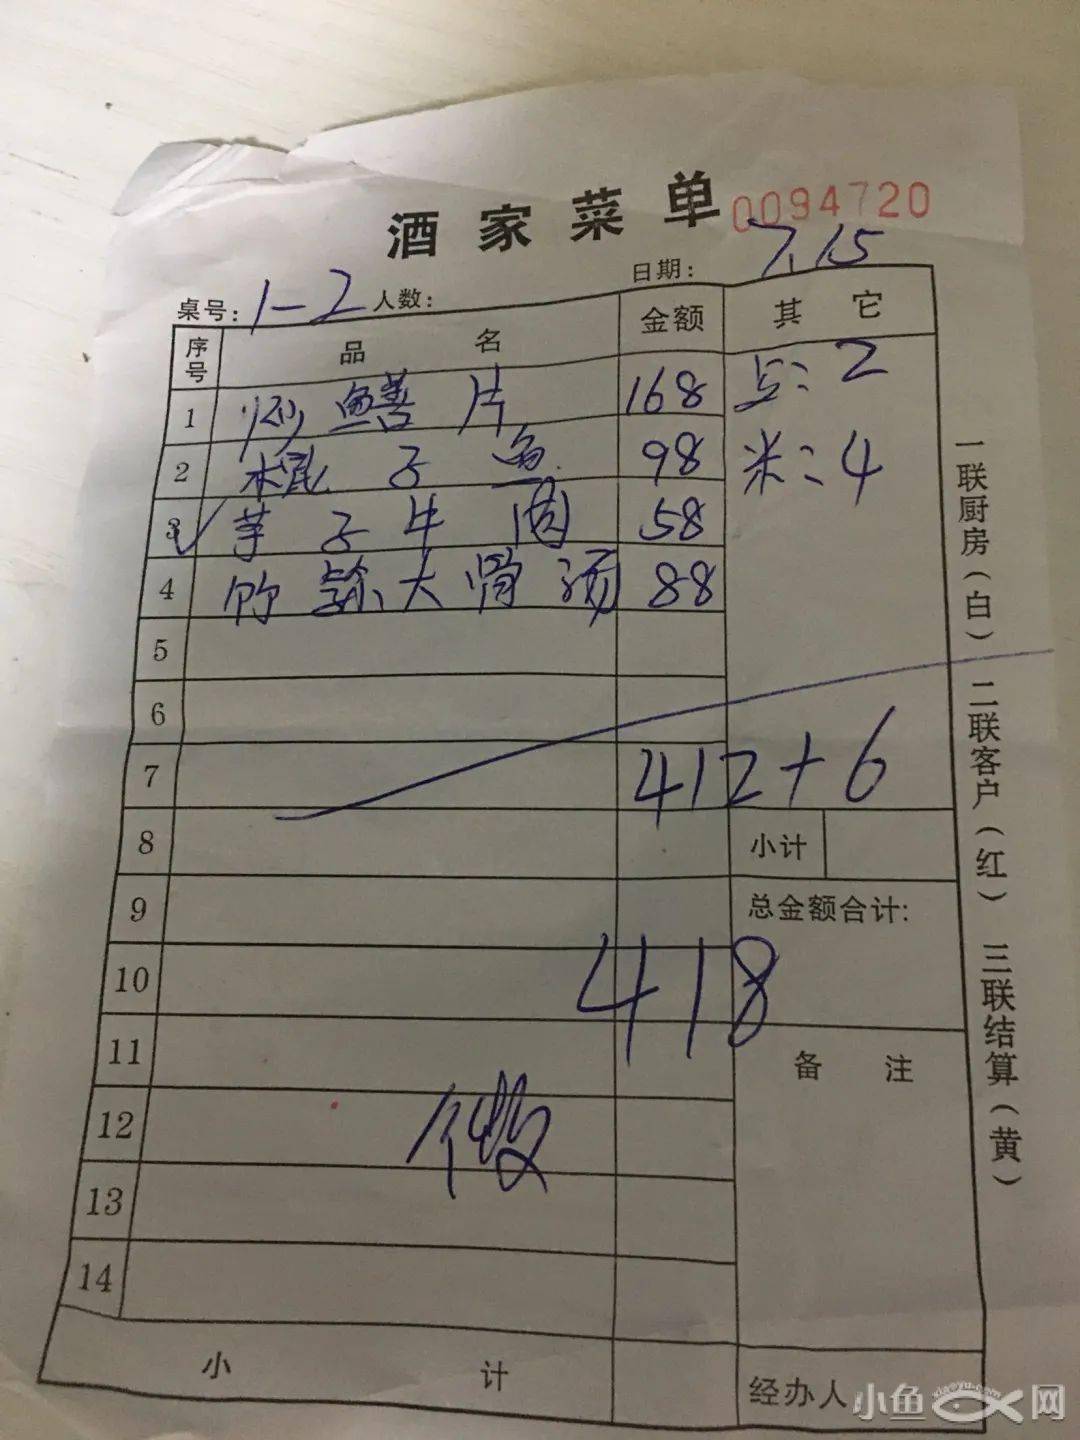 酒家菜单 0094720
桌号: 1-2 人数: 日期: 7.15
序号 品名 金额 其它
1 炒鳝片 168 点: 2
2 棍子鱼 98 米: 4
3 芋子牛肉 58
4 竹荪大骨汤 88
5
6
7 412+6
8 小计
9 总金额合计:
10 418
11 备注
12 做
13
14
小计 经办人
一联厨房(白) 二联客户(红) 三联结算(黄)
小鱼网
xiaoyu.com